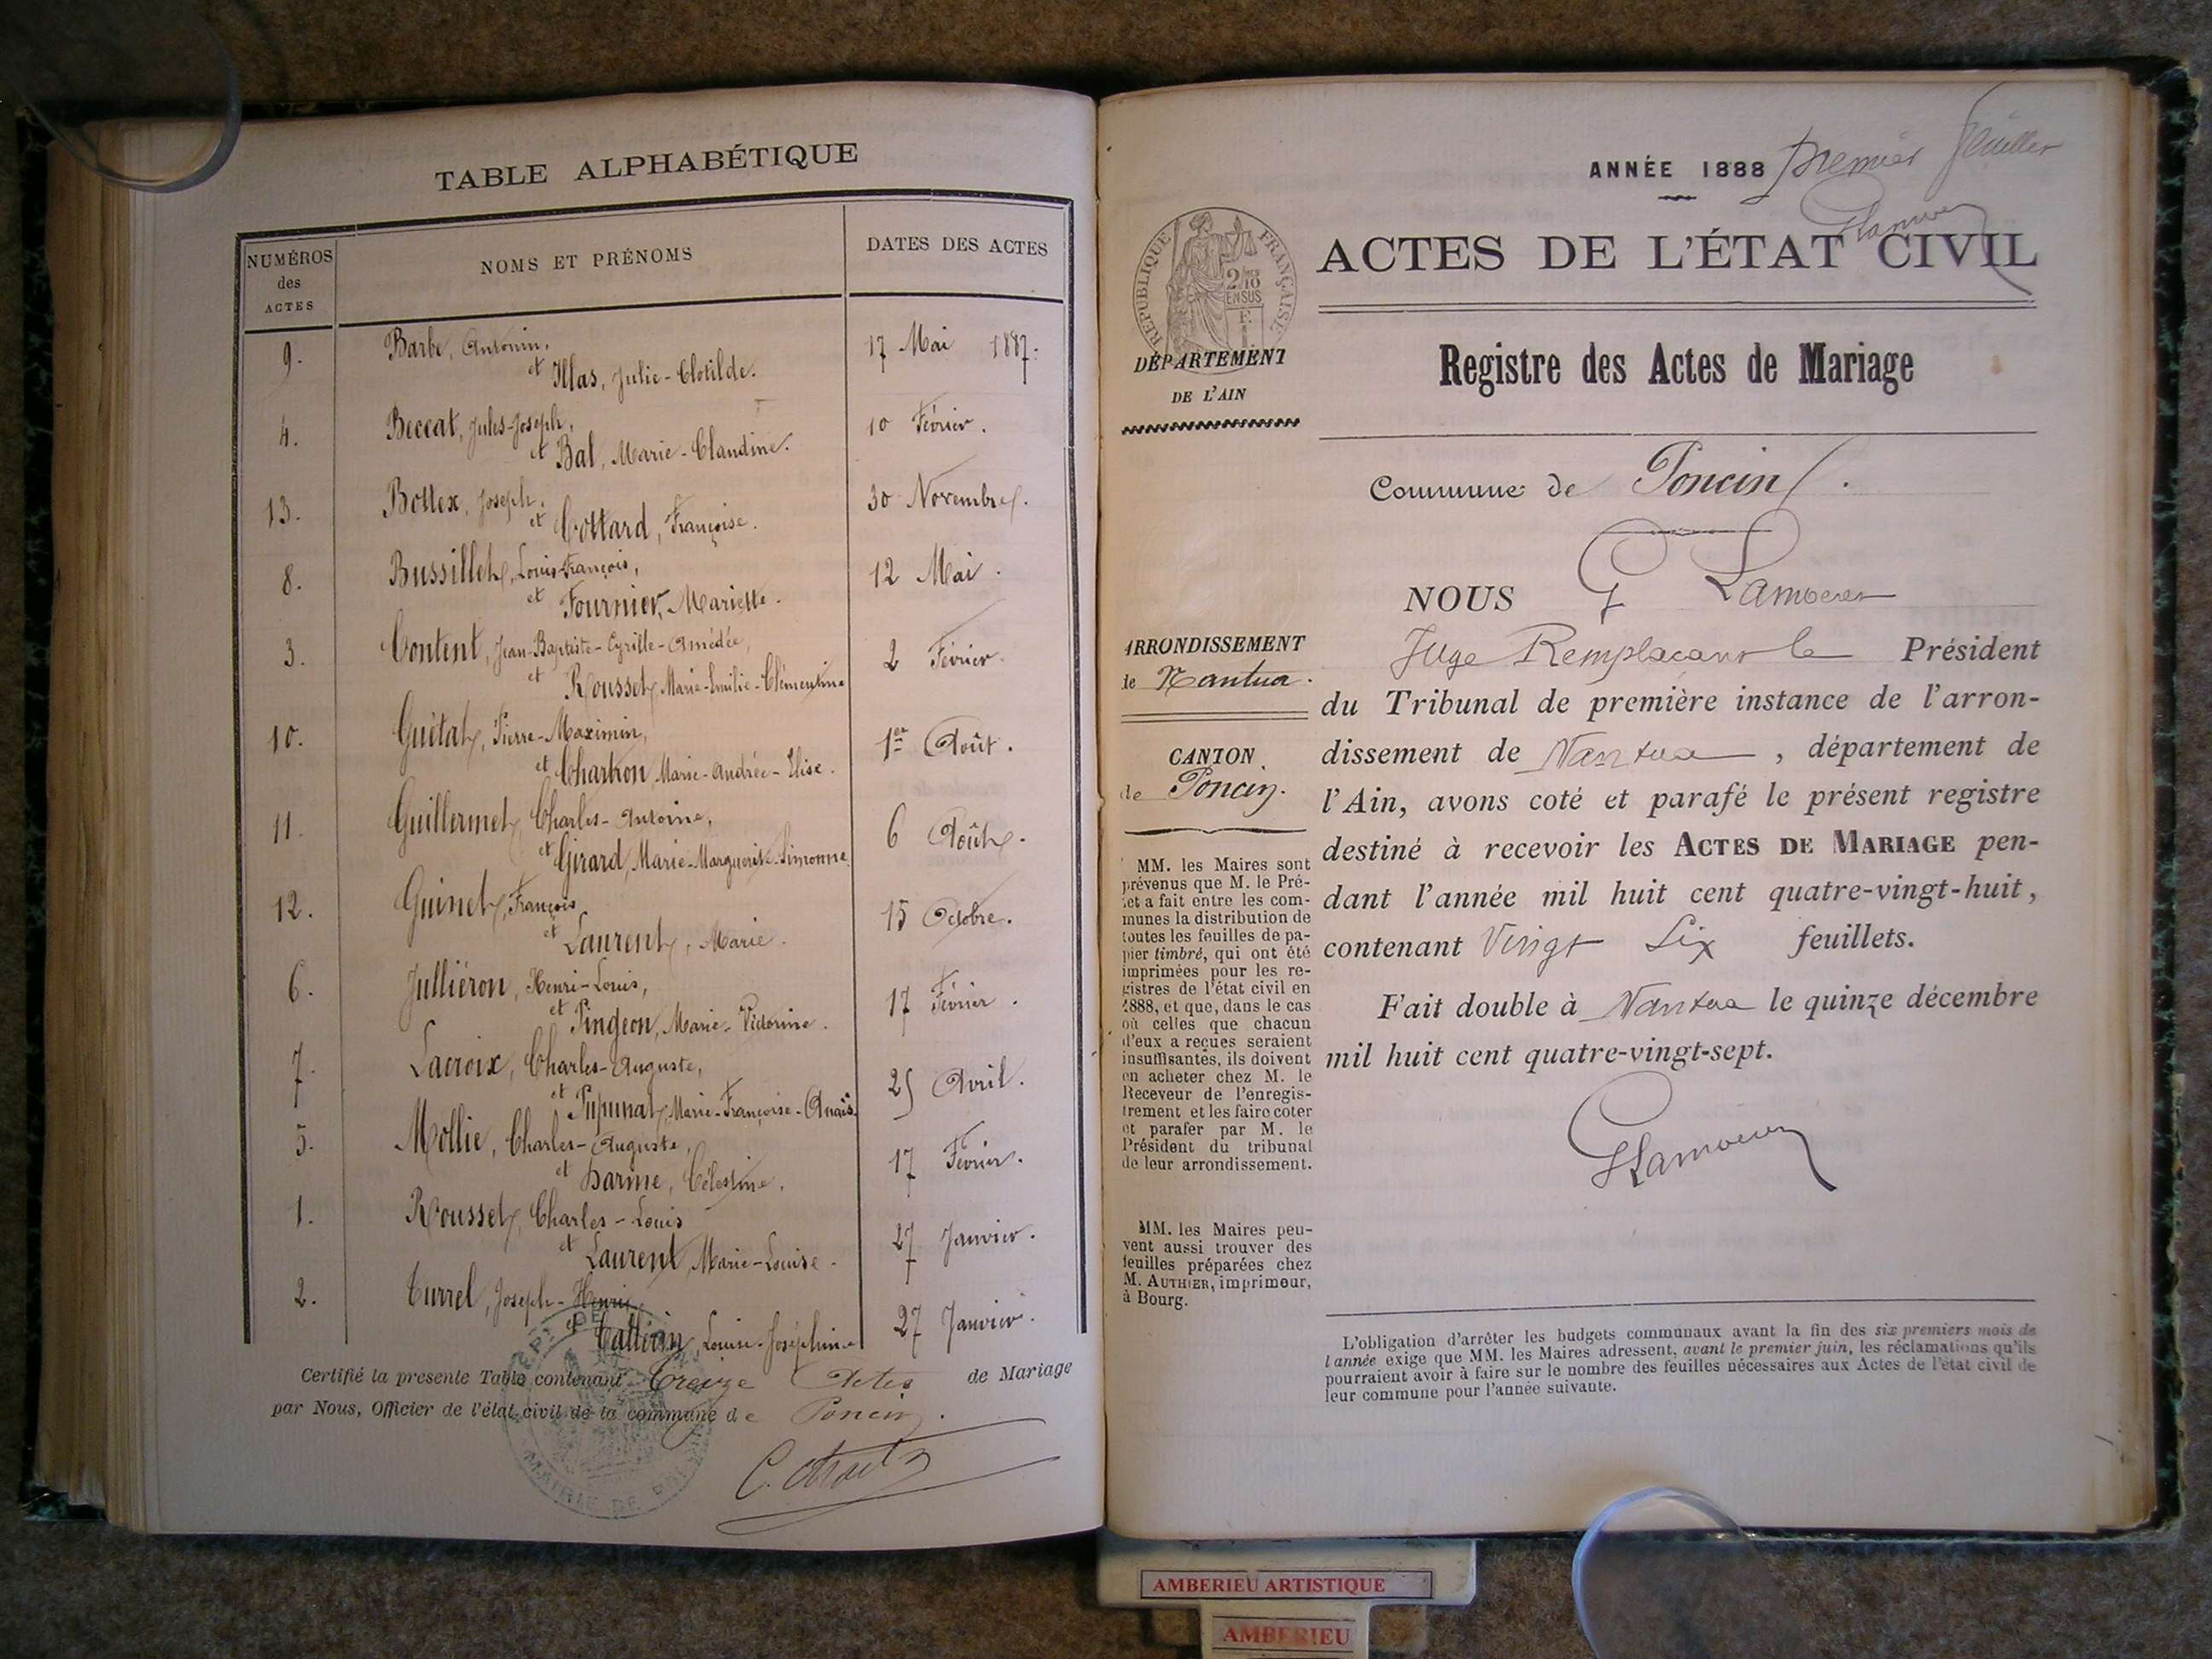 TABLE ALPHABÉTIQUE
NUMÉROS des ACTES
NOMS ET PRÉNOMS
DATES DES ACTES
9. Barbe, Antonin, 17 Mai 1887.
et Illas, Julie-Clotilde.
4. Beccat, Jules-Joseph, 10 Février.
et Bal, Marie-Claudine.
13. Bottex, Joseph, 30 Novembre.
et Cottard, Françoise.
8. Bussillet, Louis-François, 12 Mai.
et Fournier, Mariette.
3. Content, Jean-Baptiste-Cyrille-Amédée, 2 Février.
et Rousset, Marie-Emilie-Clémentine
10. Guétat, Pierre-Maximin, 1er Août.
et Charbon, Marie-Andrée-Elise.
11. Guillermet, Charles-Antoine, 6 Août.
et Girard, Marie-Marguerite-Simonne
12. Guinet, François, 15 Octobre.
et Laurent, Marie.
6. Julliéron, Henri-Louis, 17 Février.
et Pingeon, Marie-Victorine.
7. Lacroix, Charles-Auguste, 25 Avril.
et Pupunat, Marie-Françoise-Anaïs.
5. Mollie, Charles-Auguste, 17 Février.
et Darme, Célestine.
1. Rousset, Charles-Louis 27 Janvier.
et Laurent, Marie-Louise.
2. Turrel, Joseph-Henri, 27 Janvier.
et Louise-Joséphine
Certifié la presente Table contenant Treize Actes de Mariage
par Nous, Officier de l'état civil de la commune de Poncin.
MAIRIE DE
ANNÉE 1888 premier feuillet
GLamoerer
ACTES DE L'ÉTAT CIVIL
RÉPUBLIQUE FRANÇAISE
2/10 EN SUS
DÉPARTEMENT
DE L'AIN
Registre des Actes de Mariage
Commune de Poncin.
NOUS G Lamoerer
Juge Remplacant le Président
du Tribunal de première instance de l'arron-
dissement de Nantua, département de
l'Ain, avons coté et parafé le présent registre
destiné à recevoir les ACTES DE MARIAGE pen-
dant l'année mil huit cent quatre-vingt-huit,
contenant Vingt Six feuillets.
Fait double à Nantua le quinze décembre
mil huit cent quatre-vingt-sept.
GLamoerer
ARRONDISSEMENT
de Nantua.
CANTON
de Poncin.
MM. les Maires sont
prévenus que M. le Pré-
fet a fait entre les com-
munes la distribution de
toutes les feuilles de pa-
pier timbré, qui ont été
imprimées pour les re-
gistres de l'état civil en
1888, et que, dans le cas
où celles que chacun
d'eux a reçues seraient
insuffisantes, ils doivent
en acheter chez M. le
Receveur de l'enregis-
trement et les faire coter
et parafer par M. le
Président du tribunal
de leur arrondissement.
MM. les Maires peu-
vent aussi trouver des
feuilles préparées chez
M. AUTHIER, imprimeur,
à Bourg.
L'obligation d'arrêter les budgets communaux avant la fin des six premiers mois de
l'année exige que MM. les Maires adressent, avant le premier juin, les réclamations qu'ils
pourraient avoir à faire sur le nombre des feuilles nécessaires aux Actes de l'état civil de
leur commune pour l'année suivante.
AMBERIEU ARTISTIQUE
AMBERIEU